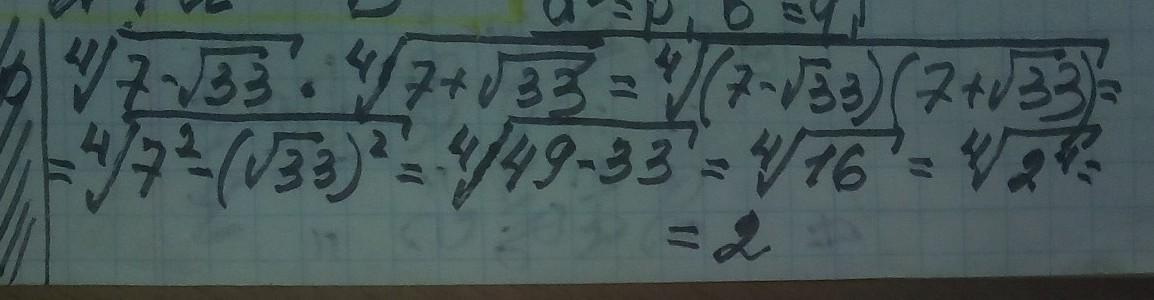 a = p, b = q,
⁴√(7-√33) · ⁴√(7+√33) = ⁴√((7-√33)(7+√33)) =
= ⁴√(7²-(√33)²) = ⁴√(49-33) = ⁴√16 = ⁴√2⁴ =
= 2